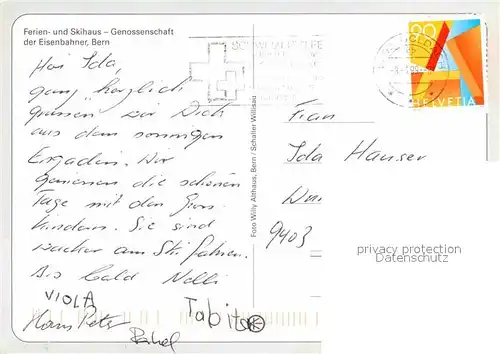 Ferien- und Skihaus – Genossenschaft
der Eisenbahner, Bern
Ida,
ganz herzlich
grüssen wir Dich
aus dem sonnigen
Engadin. Wir
geniessen die schönen
Tage mit den Gross-
kindern. Sie sind
wacker am Ski fahren.
Bis bald Nelli
VIOLA
Hans Peter
Rahel
Tabita
Foto Willy Althaus, Bern / Schaller Willisau
90
HELVETIA
Frau
Ida Hauser
9403
privacy protection
Datenschutz